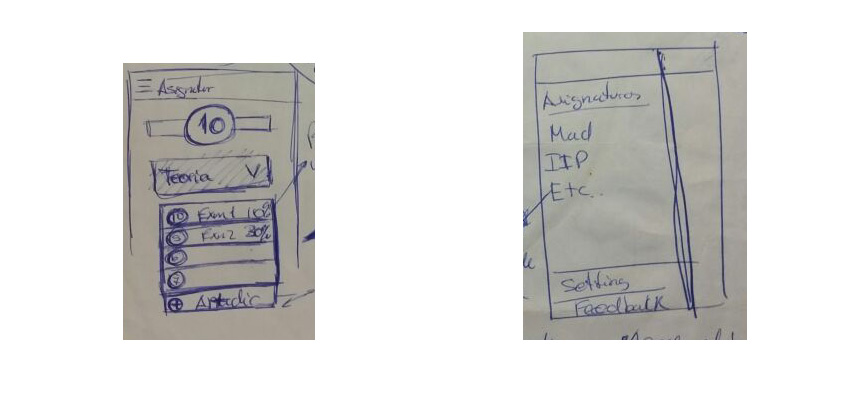 Asignatur
10
Teoria V
10 Exm1 10%
5 Exm2 30%
6
7
+
Asignaturas
Mad
IIP
Etc..
Setting
Feedback